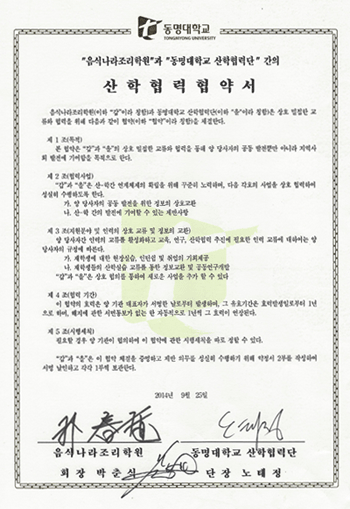 동명대학교
TONGMYONG UNIVERSITY
"음식나라조리학원"과 "동명대학교 산학협력단" 간의
산 학 협 력 협 약 서
음식나라조리학원(이하 "갑"이라 칭함)과 동명대학교 산학협력단(이하 "을"이라 칭함)은 상호 밀접한 교
류와 협력을 위해 다음과 같이 협약(이하 "협약"이라 칭함)을 체결한다.
제 1 조(목적)
본 협약은 "갑"과 "을"의 상호 밀접한 교류와 협력을 통해 양 당사자의 공동 발전뿐만 아니라 지역사
회 발전에 기여함을 목적으로 한다.
제 2 조(협력사업)
"갑"과 "을"은 산·학간 연계체제의 확립을 위해 꾸준히 노력하며, 다음 각호의 사업을 상호 협력하여
성실히 수행하도록 한다.
가. 양 당사자의 공동 발전을 위한 정보의 상호교환
나. 산·학 간의 발전에 기여할 수 있는 제반사항
제 3 조(지원분야 및 인력의 상호 교류 및 정보의 교환)
양 당사자간 인력의 교류를 활성화하고 교육, 연구, 산학협력 추진에 필요한 인력 교류에 대하여는 양
당사자의 규정에 따른다.
가. 재학생에 대한 현장실습, 인턴십 및 취업의 기회제공
나. 재학생들의 산학실습 교류를 통한 정보교환 및 공동연구개발
"갑"과 "을"은 상호 협의를 통하여 새로운 사업을 추가 할 수 있다
제 4 조(협력 기간)
이 협약의 효력은 양 기관 대표자가 서명한 날로부터 발생하며, 그 유효기간은 효력발생일로부터 1년
으로 하며, 해지에 관한 서면통보가 없는 한 자동적으로 1년씩 그 효력이 연장된다.
제 5 조(시행세칙)
필요할 경우 양 기관이 협의하여 이 협약에 관한 시행세칙을 따로 정할 수 있다.
"갑"과 "을"은 이 협약 체결을 증명하고 제반 의무를 성실히 수행하기 위해 약정서 2부를 작성하여
서명 날인하고 각각 1부씩 보관한다.
2014년 9월 25일
음식나라조리학원 동명대학교 산학협력단
회 장 박 춘 식 단 장 노 태 정